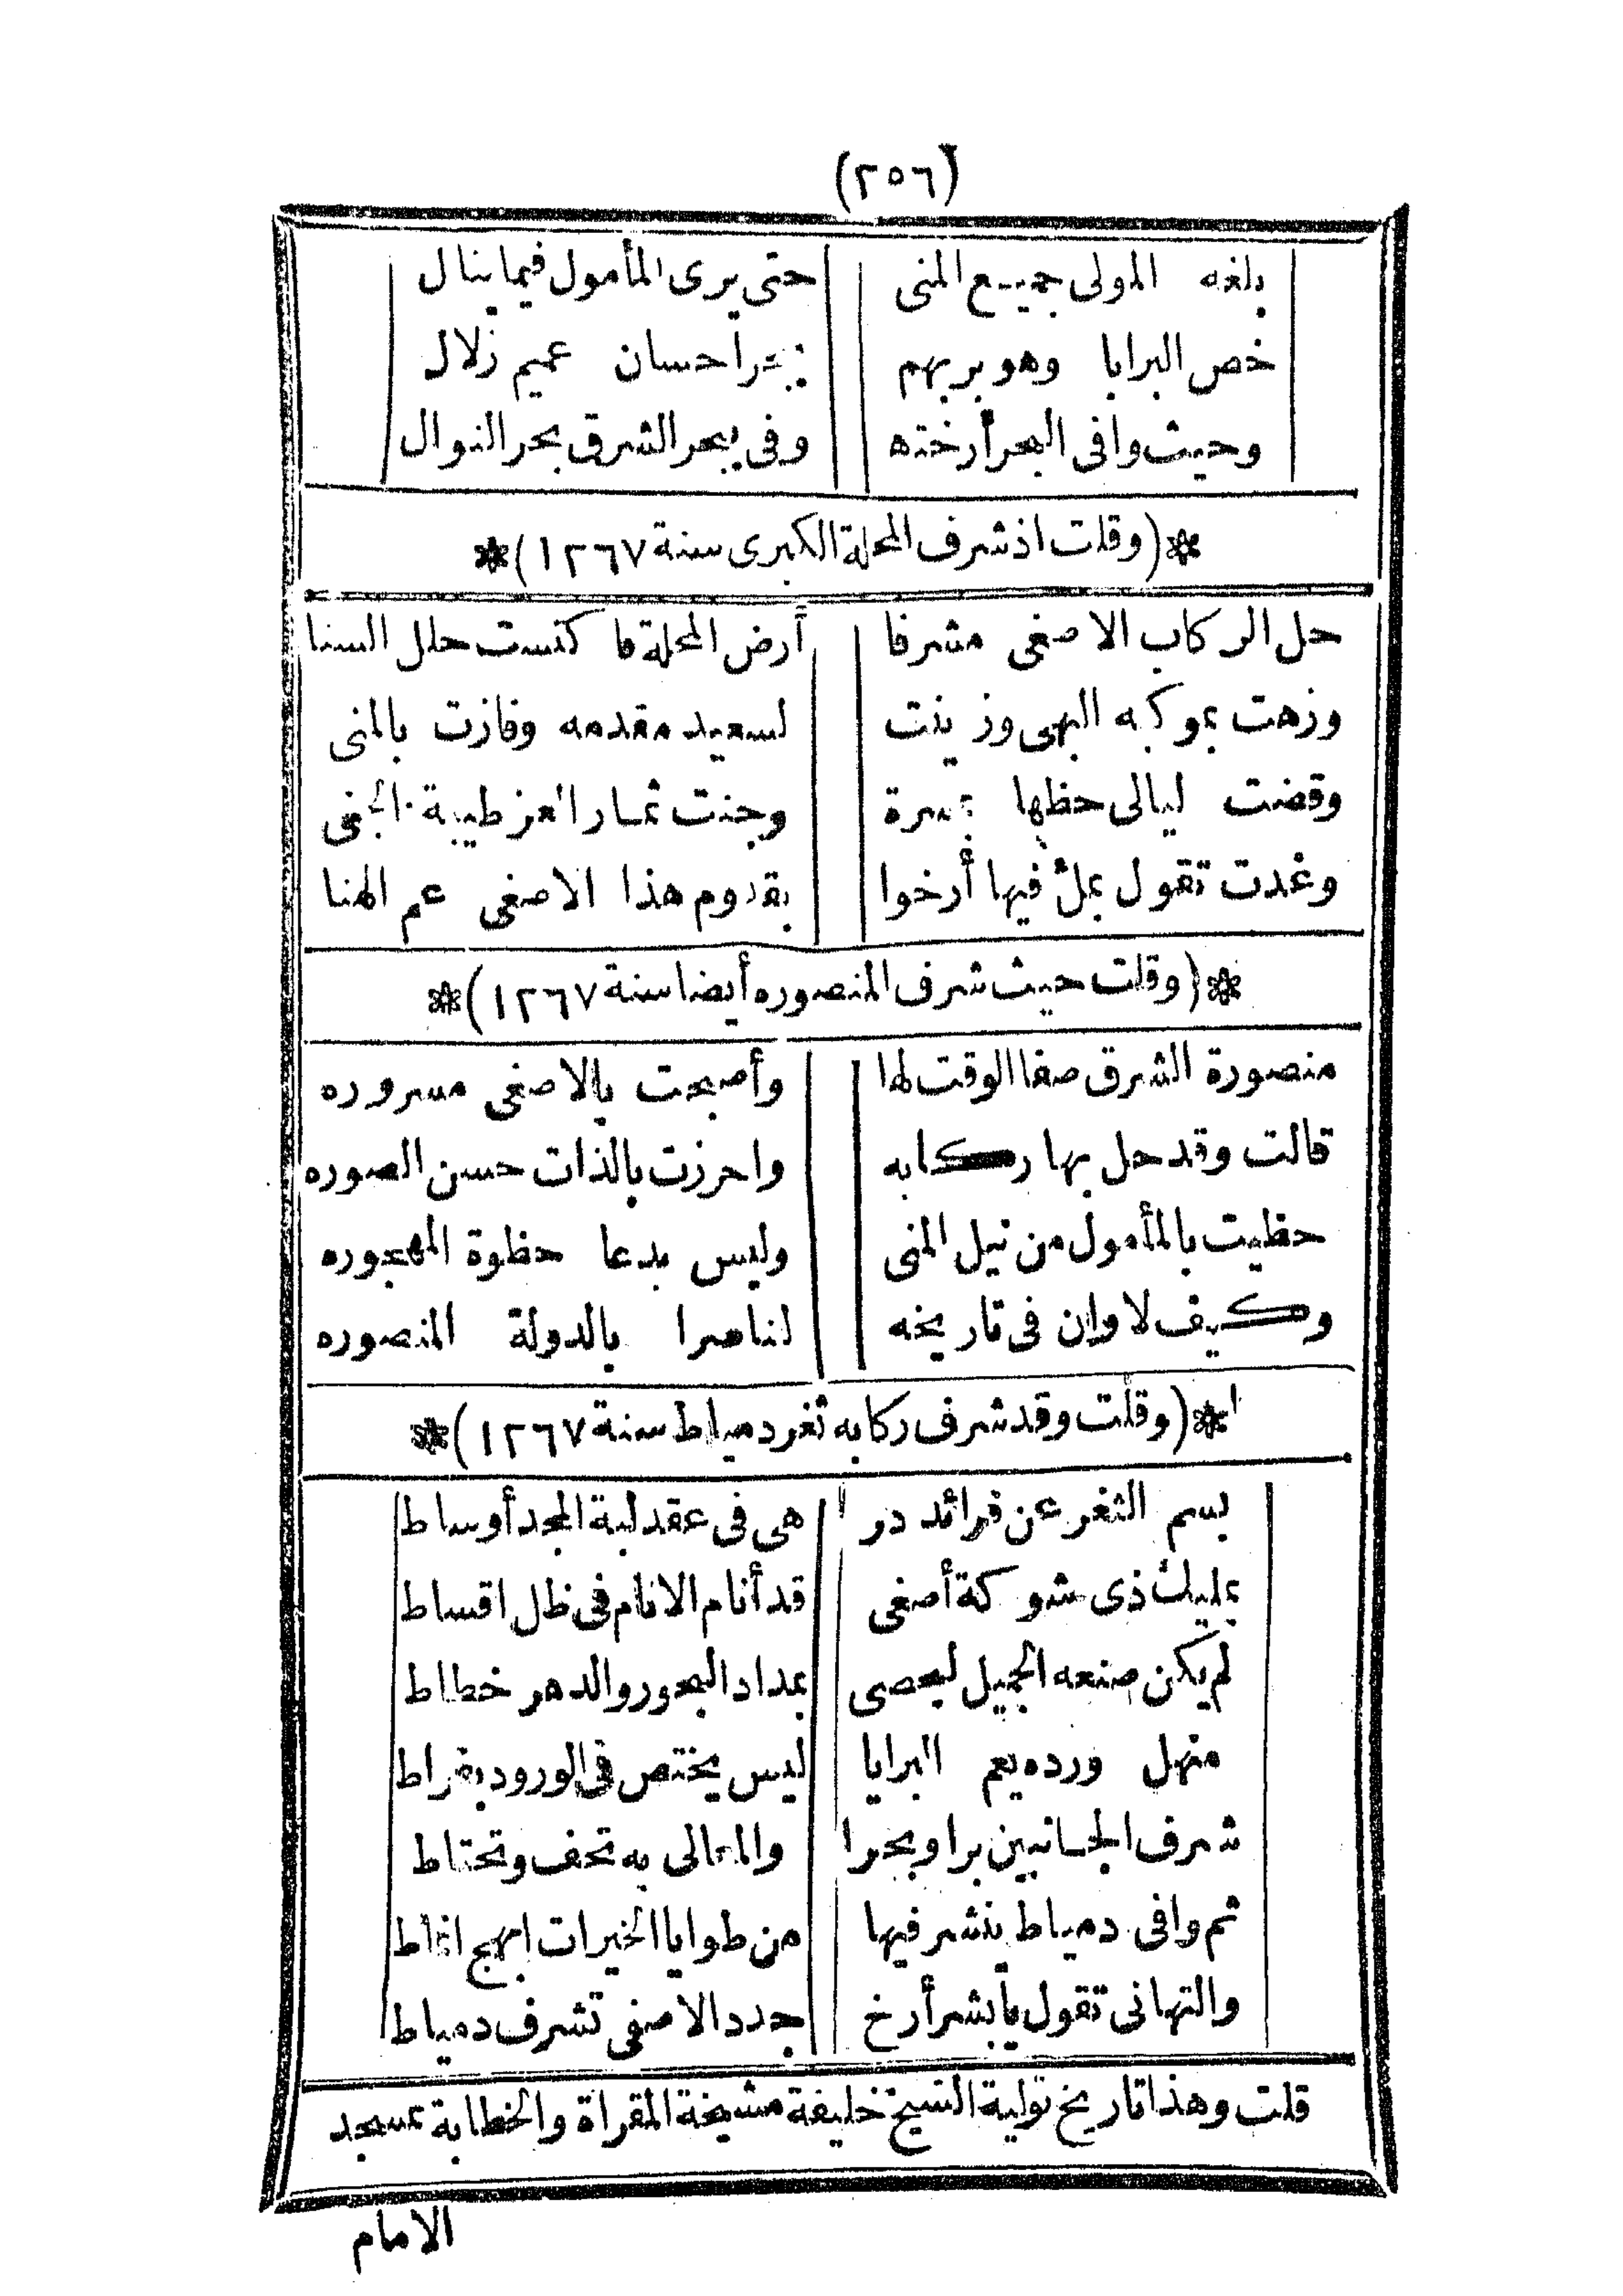 (٢٥٦)
بلغه المولى جميع المنى حتى يرى المأمول فيما ينال
خص البرايا وهو بر بهم ببحر احسان عميم زلال
وحيث وافى البحر أرخته وفى ببحر الشرق بحر النوال
*(وقلت اذ شرف المحلة الكبرى سنة ١٢٦٧)*
حل الركاب الاصفى مشرفا أرض المحلة فاكتست حلل السنا
وزهت بموكبه البهى وزينت لسعيد مقدمه وفازت بالمنى
وقضت ليالى حظها بمسرة وجنت ثمار العز طيبة الجنى
وغدت تقول بملْ فيها أرخوا بقدوم هذا الاصفى عم الهنا
*(وقلت حيث شرف المنصوره أيضا سنة ١٢٦٧)*
منصورة الشرق صفا الوقت لها وأصبحت بالاصفى مسروره
قالت وقد حل بها ركابه واحرزت بالذات حسن الصوره
حظيت بالمأمول من نيل المنى وليس بدعا حظوة المهجوره
وكيف لا وان فى تاريخه لناصرا بالدولة المنصوره
*(وقلت وقد شرف ركابه ثغر دمياط سنة ١٢٦٧)*
بسم الثغر عن فرائد در هى فى عقد لبة المجد أوساط
بمليك ذى شوكة أصفى قد أنام الانام فى ظل اقساط
لم يكن صنعه الجميل ليحصى بمداد البحور والدهر خطاط
منهل ورده يعم البرايا ليس يختص فى الورود بقراط
شرف الجانبين برا وبحرا والمعالى به تحف وتحتاط
ثم وافى دمياط ينشر فيها من طوايا الخيرات ابهج انماط
والتهانى تقول يا بشر أرخ جدد الاصفى تشرف دمياط
قلت وهذا تاريخ تولية الشيخ خليفة مشيخة المقراة والخطابة بمسجد
الامام